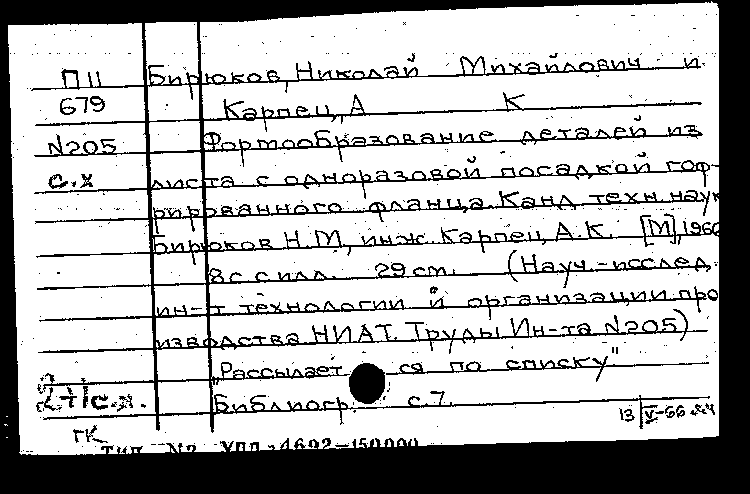 П11 Бирюков, Николай Михайлович и
679 Карпец, А К
N205 Формообразование деталей из
с.х листа с одноразовой посадкой гоф-
рированного фланца. Канд. техн. наук
Бирюков Н.М., инж. Карпец, А.К. [М], 1960
8с с илл. 29 см. (Науч.-исслед.
ин-т технологии и организации про
изводства НИАТ. Труды Ин-та N205)
"Рассылается по списку"
2+1с.х. Библиогр. с.7.
13 V-66
ГК
Тип. N2 УПП 4692-150000